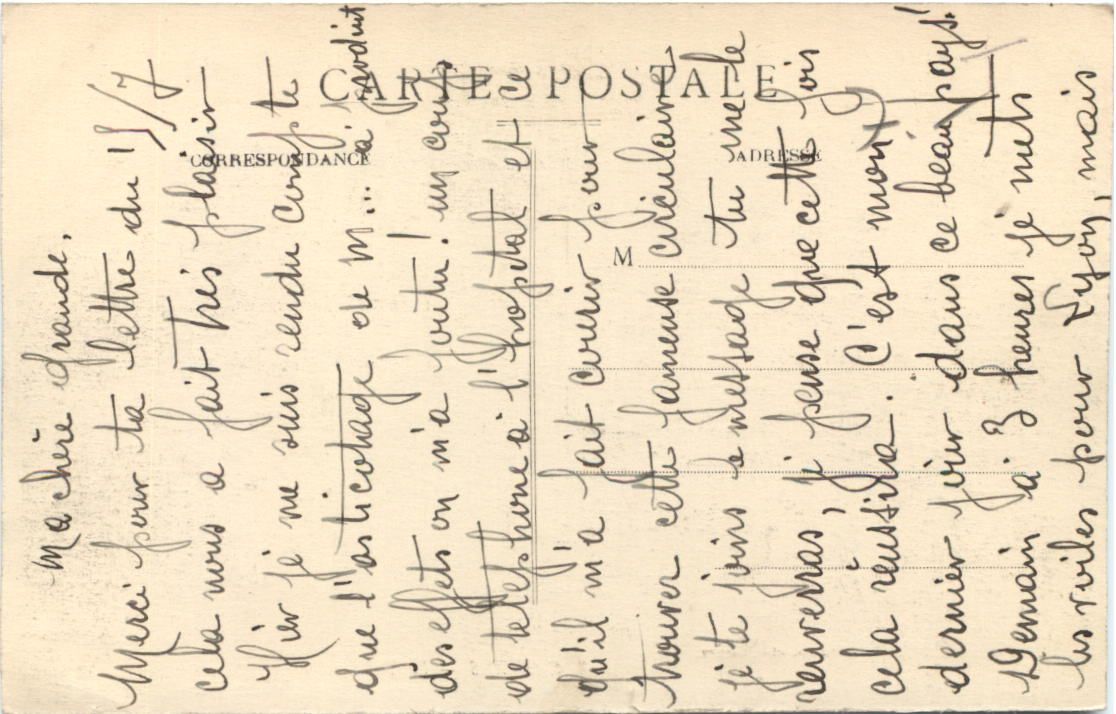 CARTE POSTALE
CORRESPONDANCE
ADRESSE
M
Ma chère grande,
Merci pour ta lettre du 15/7
cela nous a fait très plaisir
Hier je me suis rendu compte
que l'asticotage de M... a produit
des effets on m'a foutu! un coup
de telephone à l'hopetal et ce
qu'il m'a fait courir pour
trouver cette fameuse circulaire
je te joins le message tu me le
renverras, je pense que cette fois
cela réussira. C'est mon
dernier jour dans ce beau pays!
Demain à 3 heures je mets
les voiles pour Lyon, mais